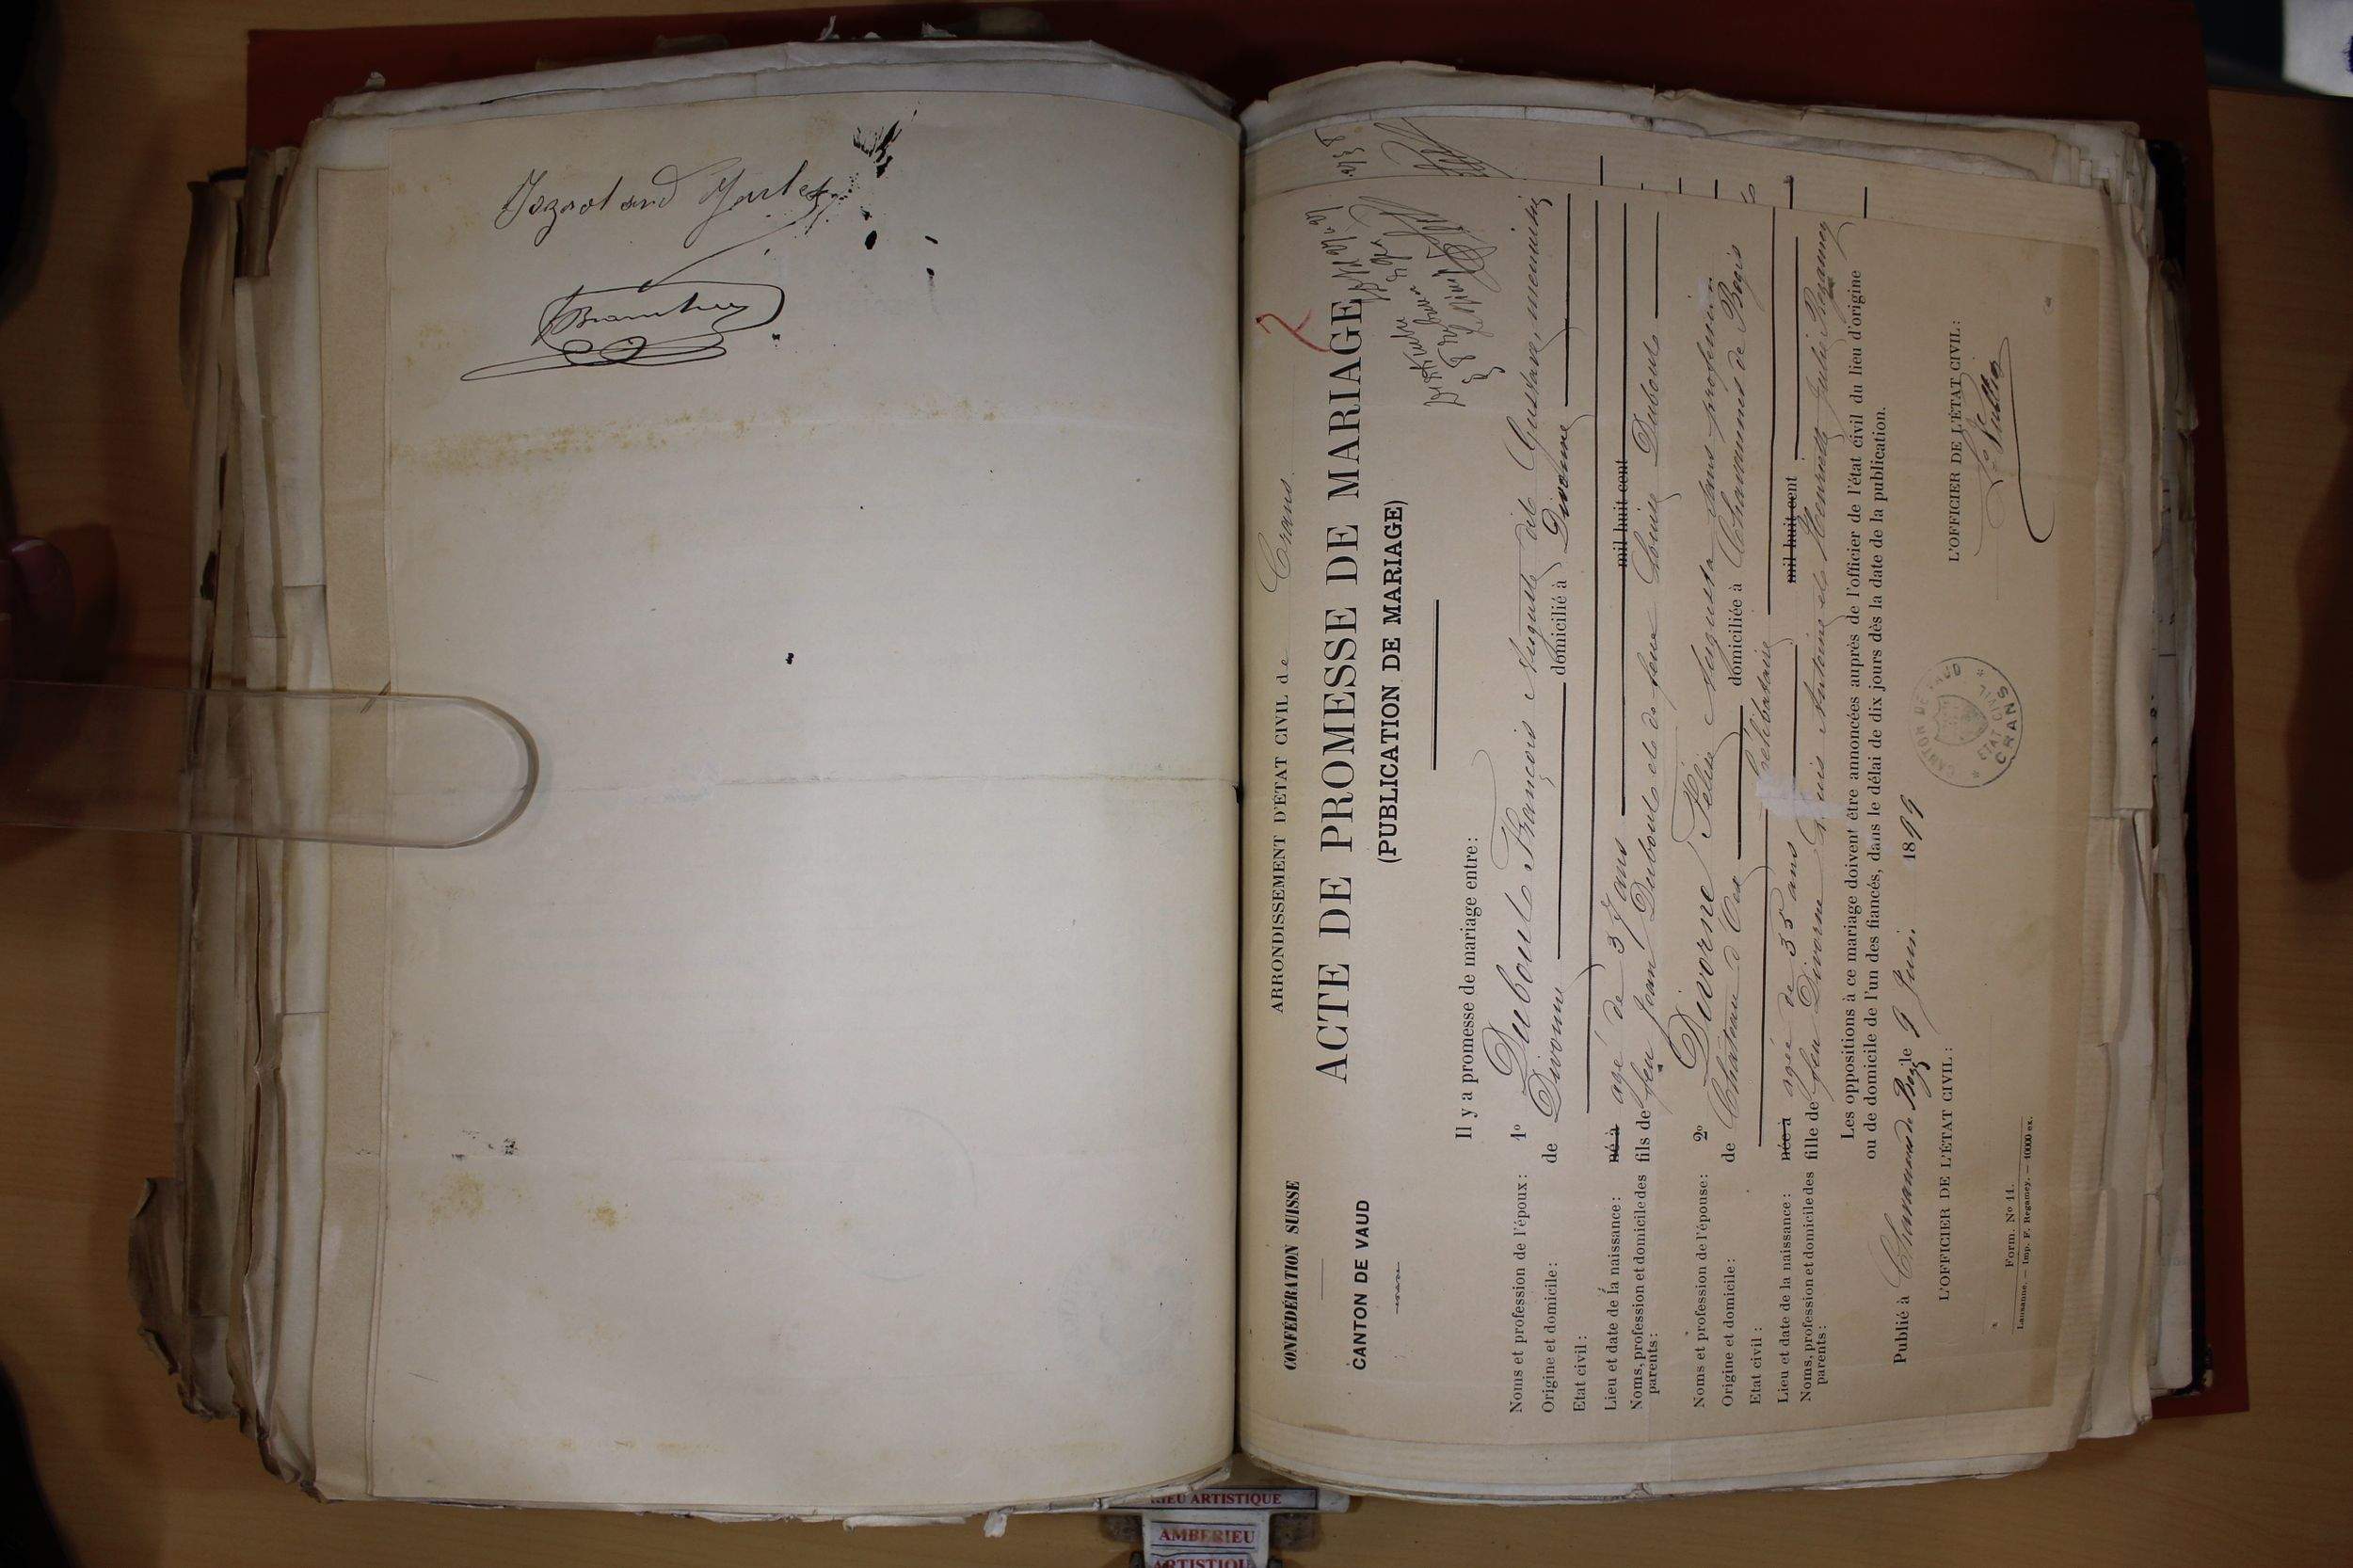 CONFÉDÉRATION SUISSE
CANTON DE VAUD
ARRONDISSEMENT D'ÉTAT CIVIL de Crans
ACTE DE PROMESSE DE MARIAGE
(PUBLICATION DE MARIAGE)
2
Il y a promesse de mariage entre :
Noms et profession de l'époux : 1º Duboule François Auguste dit Gustave
Origine et domicile : de Divonne domicilié à Divonne
Etat civil :
Lieu et date de la naissance : né à agé de 37 ans mil huit cent
Noms, profession et domicile des parents : fils de feu Jean Duboule et de feue Louise Duboule
Noms et profession de l'épouse : 2º Divorne Félise Augusta sans profession
Origine et domicile : de Château d'Oex domiciliée à Chavannes de Bogis
Etat civil : célibataire
Lieu et date de la naissance : née à agée de 35 ans mil huit cent
Noms, profession et domicile des parents : fille de feu Divorne Louis Antoine et de Henriette Julie Regamey
Les oppositions à ce mariage doivent être annoncées auprès de l'officier de l'état civil du lieu d'origine
ou de domicile de l'un des fiancés, dans le délai de dix jours dès la date de la publication.
Publié à Chavannes de Bogis le 9 Juin 1899
L'OFFICIER DE L'ÉTAT CIVIL :
L'OFFICIER DE L'ÉTAT CIVIL :
CANTON DE VAUD
ETAT CIVIL
CRANS
Form. Nº 11.
Lausanne. — Imp. F. Regamey. — 4000 ex.
ARTISTIQUE
AMBERIEU